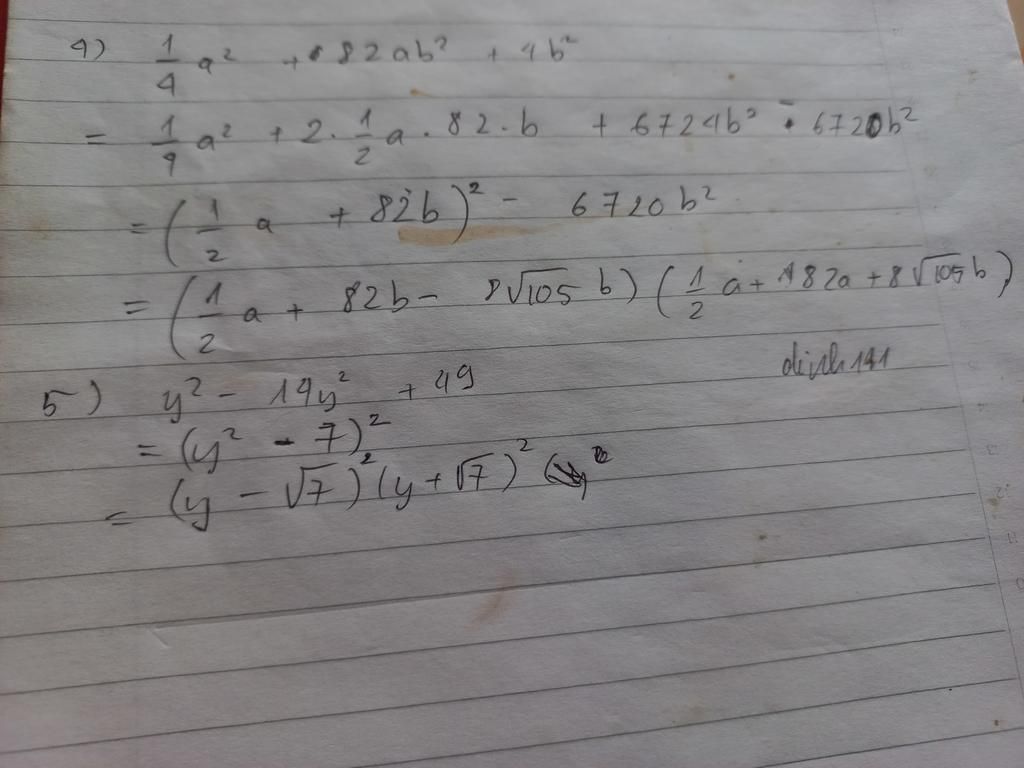 4) 1/4 a² + 82ab² + 4b²
= 1/4 a² + 2 · 1/2 a · 82 · b + 6724b² - 6720b²
= (1/2 a + 82b)² - 6720b²
= (1/2 a + 82b - 8√105 b) (1/2 a + 182a + 8√105 b)
5) y² - 14y² + 49
= (y² - 7)²
= (y - √7)² (y + √7)²